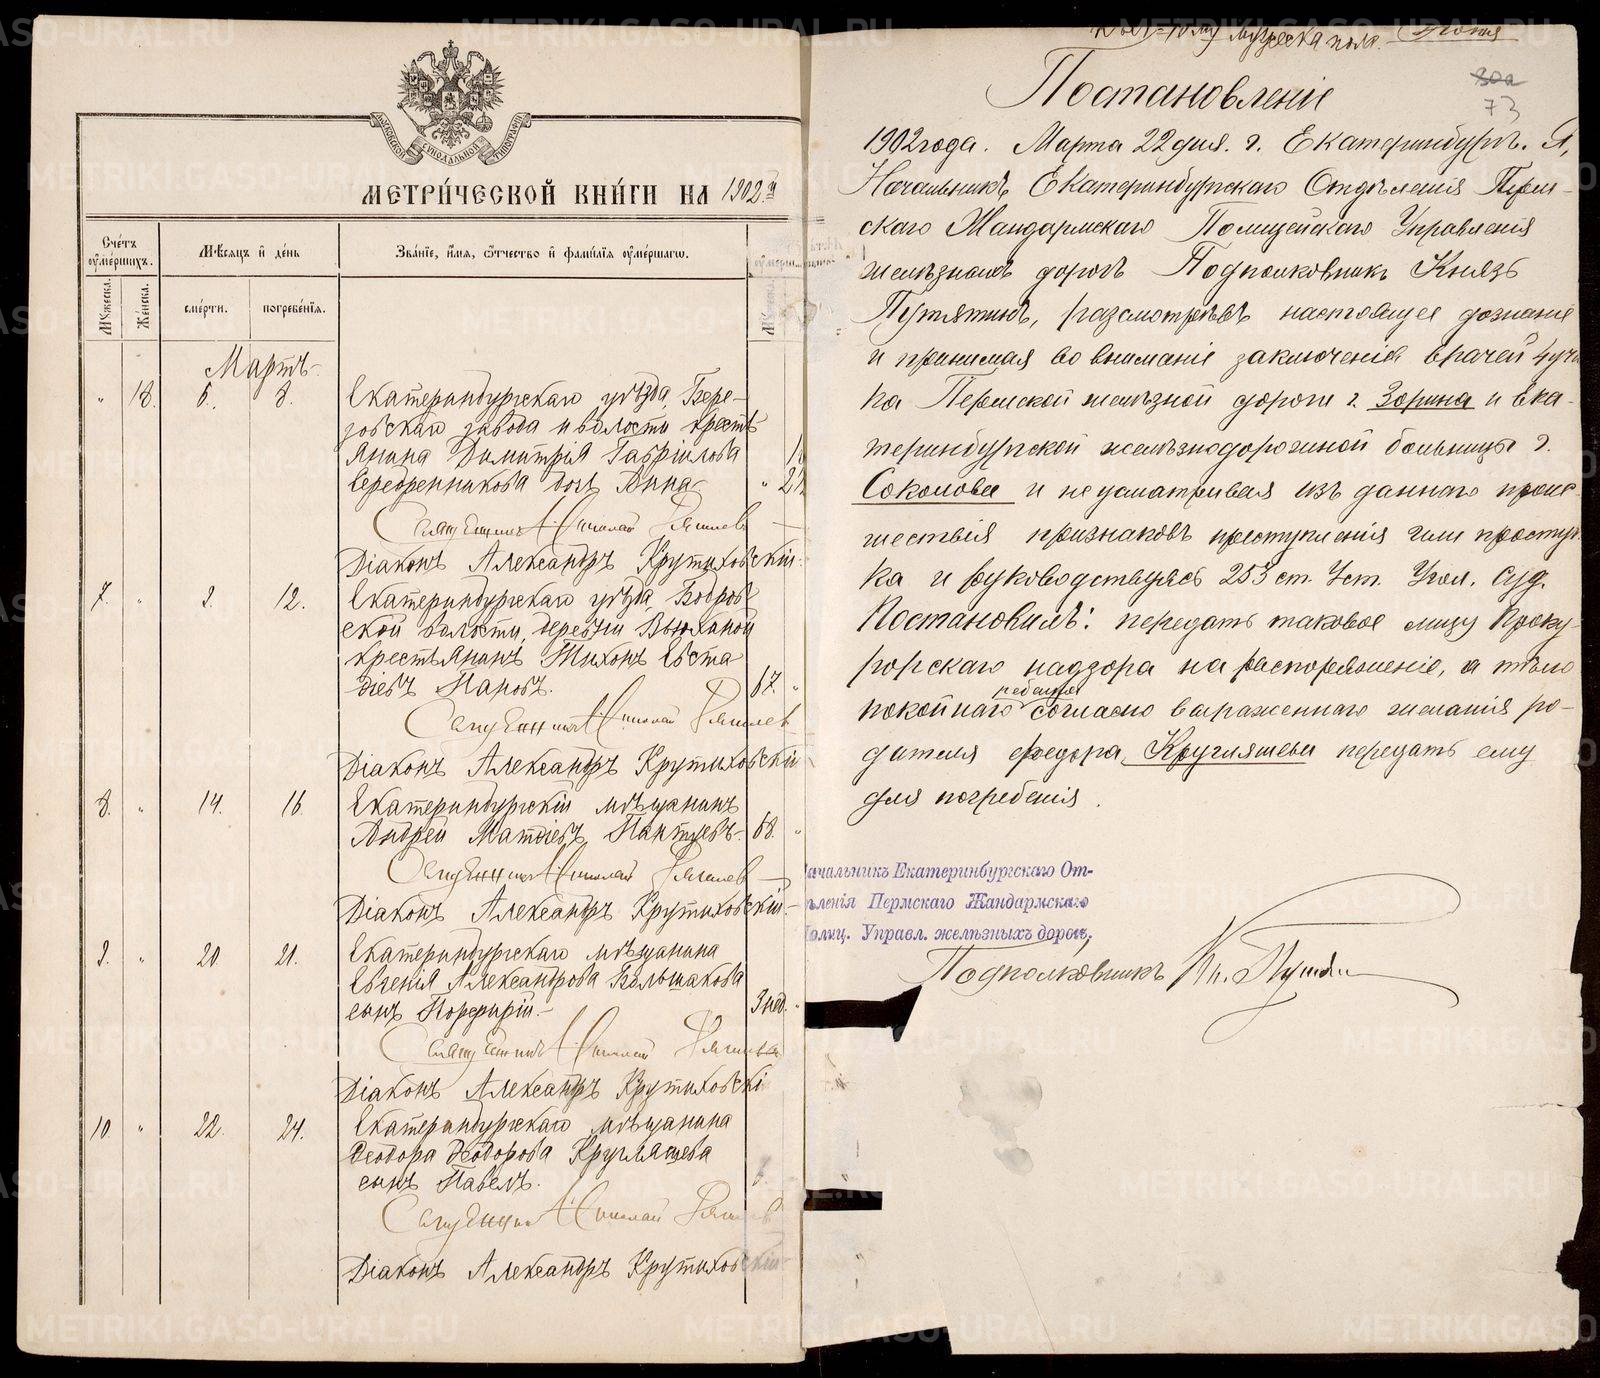 МЕТРИ́ЧЕСКОЙ КНИ́ГИ НА 1902й
Счетъ оумершихъ.
Мужеска.
Женска.
Мѣсяцъ и день
смерти.
погребенія.
Званіе, имя, отчество и фамилія оумершагѡ.
Мартъ
" 18. 6. 8. Екатеринбургскаго уѣзда, Бере-
зовскаго завода и волости крестъ
янина Димитрія Гавріилова
Серебренникова дочь Анна
Священникъ Николай
Діаконъ Александръ Крутиховскій.
7. " 9. 12. Екатеринбургскаго уѣзда, Бобров
ской волости, деревни
крестьянинъ Тихонъ Евста
фіевъ Паровъ. 67. "
Священникъ Николай
Діаконъ Александръ Крутиховскій
8. " 14. 16. Екатеринбургскій мѣщанинъ
Андрей 68. "
Священникъ Николай
Діаконъ Александръ Крутиховскій.
9. " 20. 21. Екатеринбургскаго мѣщанина
Евгенія Александрова Большакова
сынъ Порфирій. 3 нед. "
Священникъ Николай
Діаконъ Александръ Крутиховскі
10. " 22. 24. Екатеринбургскаго мѣщанина
Феодора Феодорова Кругляшева
сынъ Павелъ.
Священникъ Николай
Діаконъ Александръ Крутиховскій
30а
73
Постановленіе
1902 года. Марта 22 дня. г. Екатеринбургъ. Я,
Начальникъ Екатеринбургскаго Отдѣленія Перм-
скаго Жандармскаго Полицейскаго Управленія
желѣзныхъ дорогъ Подполковникъ Князь
Путятинъ, разсмотрѣвъ настоящее дознаніе
и принимая во вниманіе заключенія врачей 4 уча
ка Пермской желѣзной дороги г. Зорина и Ека-
теринбургской желѣзнодорожной больницы г.
Соколова и не усматривая изъ даннаго проис
шествія признаковъ преступленія или проступ
ка и руководствуясь 253 ст. Уст. Угол. Суд.
Постановилъ: передать таковое лицу Проку-
рорскаго надзора на распоряженіе, а тѣло
покойнаго ребенка согласно выраженнаго желанія ро-
дителя Федора Кругляшева передать ему
для погребенія.
Начальникъ Екатеринбургскаго От-
дѣленія Пермскаго Жандармскаго
Полиц. Управл. желѣзныхъ дорогъ,
Подполковникъ Кн. Путятин